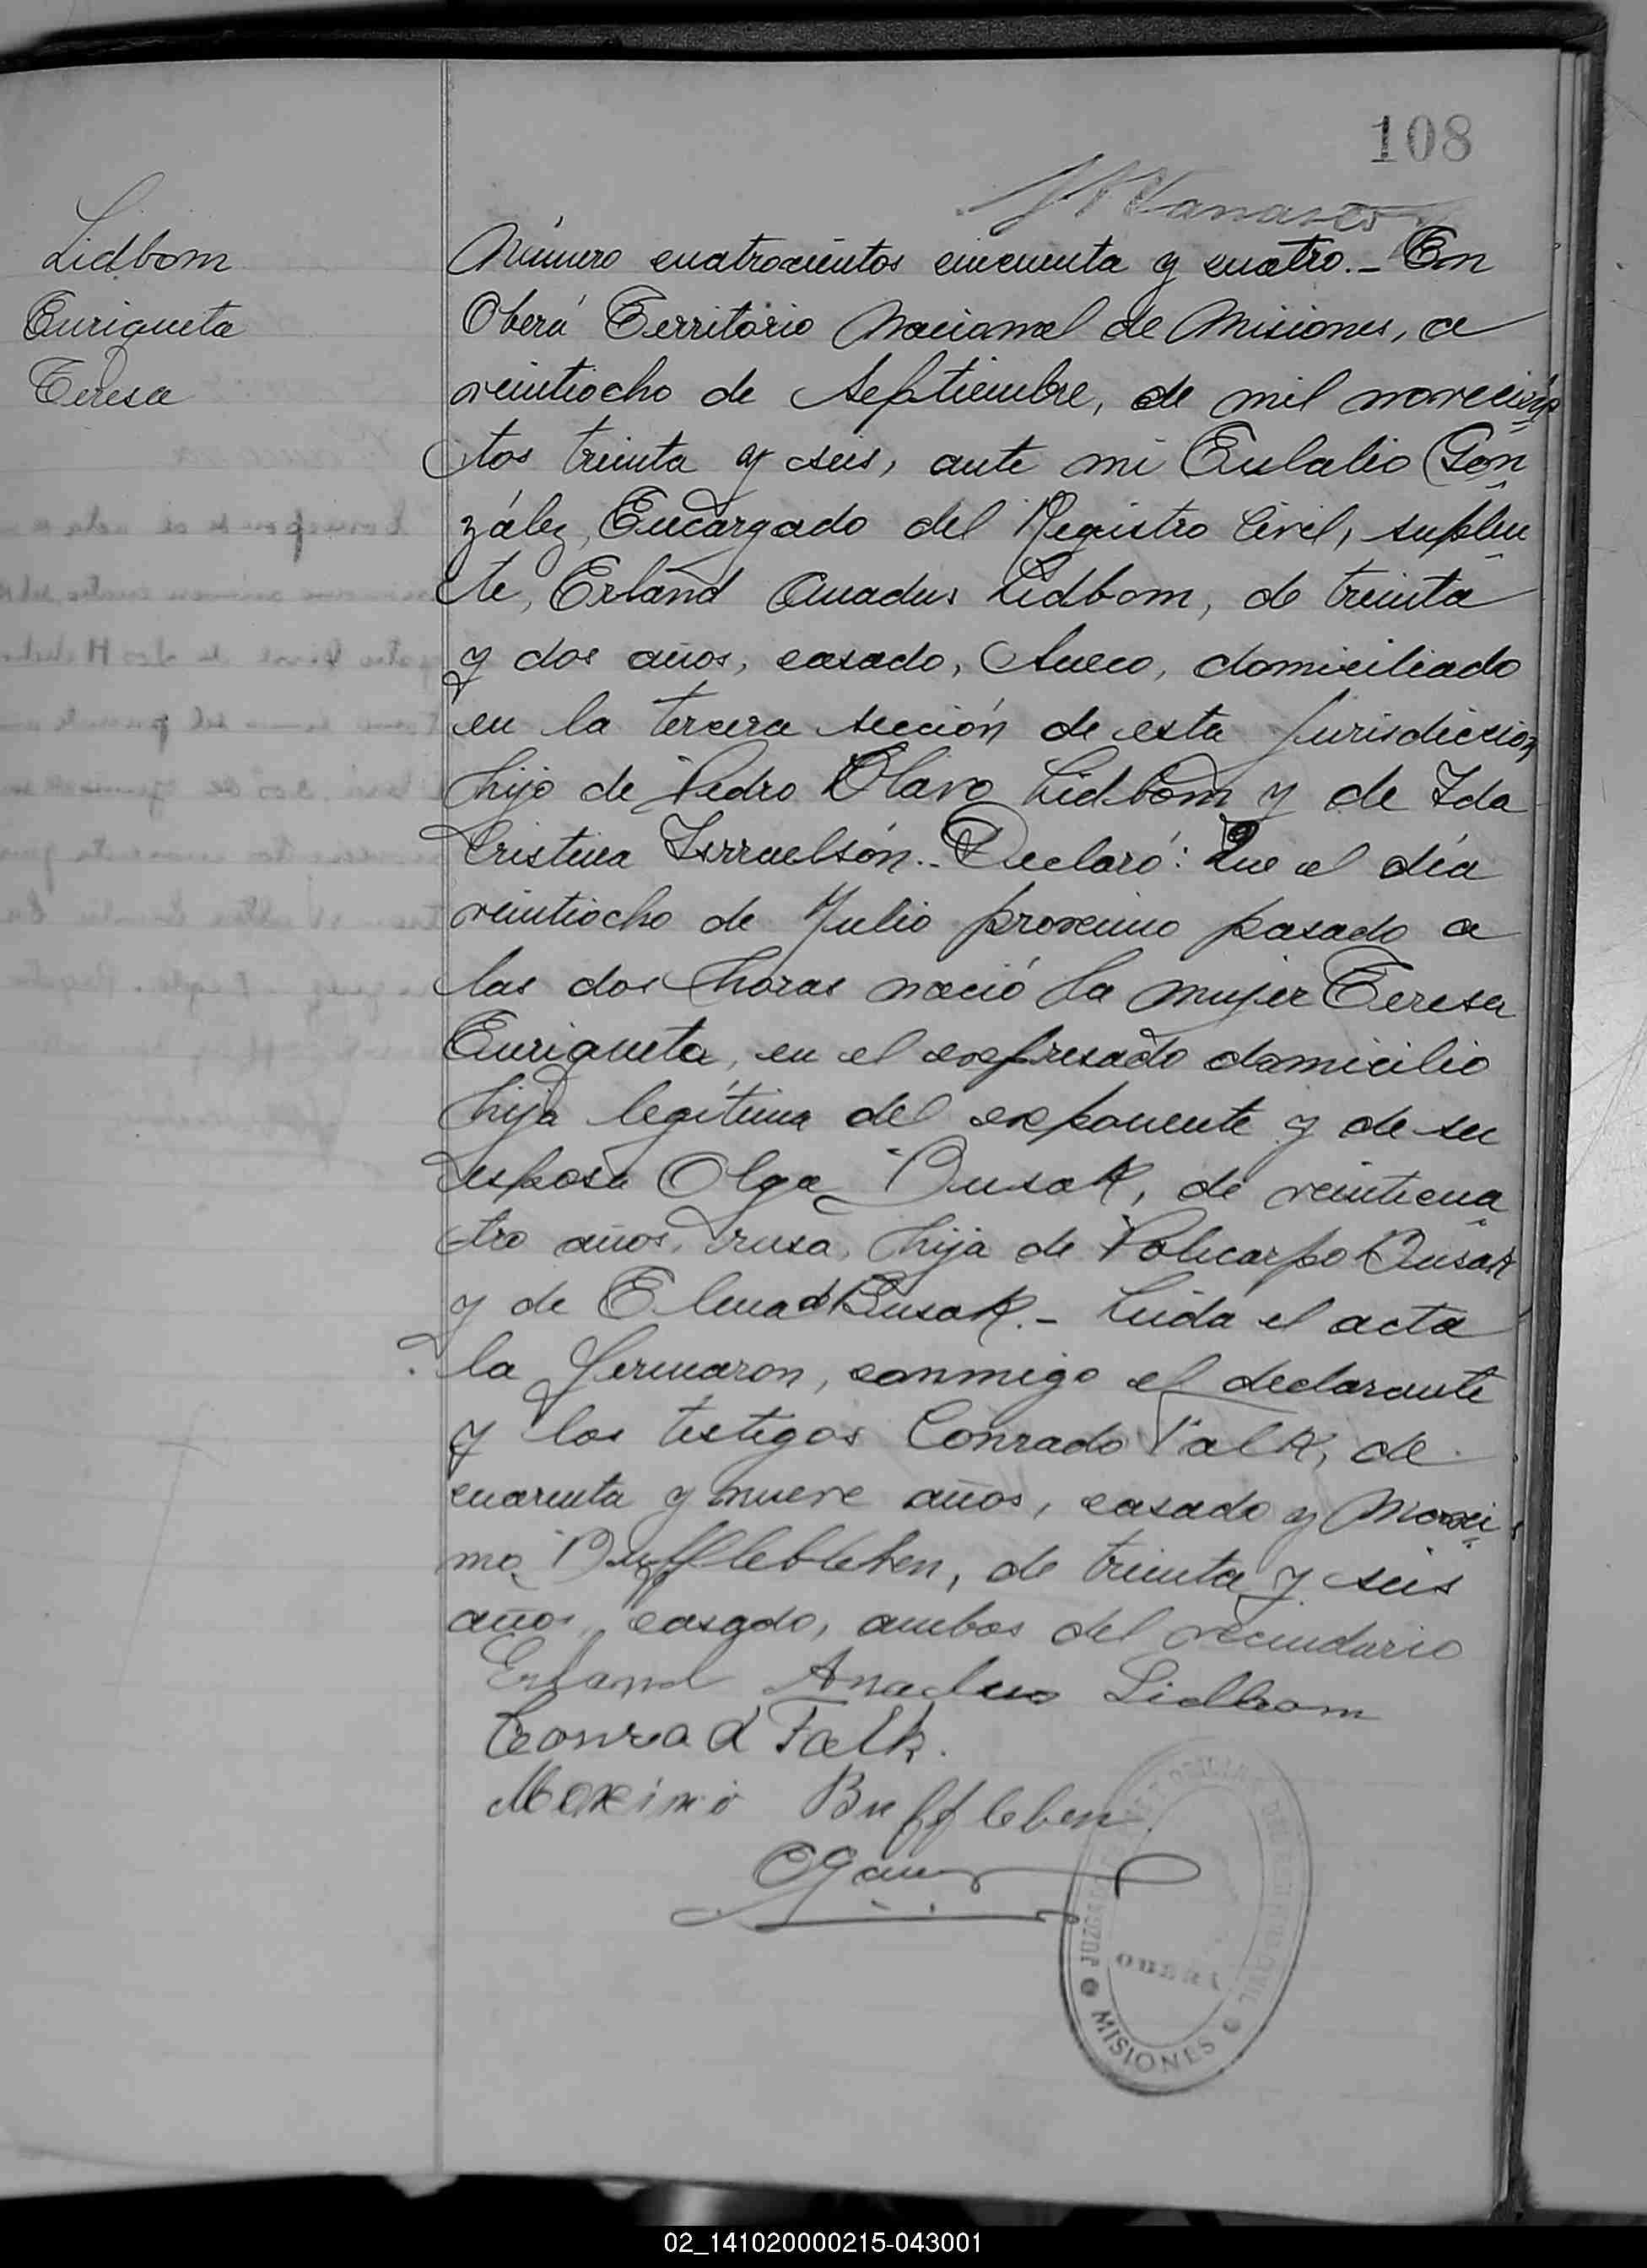 108
Lidbom
Enriqueta
Teresa
Número cuatrocientos cincuenta y cuatro.- En
Oberá Territorio Nacional de Misiones, a
veintiocho de Septiembre, de mil novecien
tos treinta y seis, ante mi Eulalio Gon
zález, Encargado del Registro Civil, suplen
te, Erland Amadus Lidbom, de treinta
y dos años, casado, Sueco, domiciliado
en la tercera sección de esta Jurisdiccion
hijo de Pedro Olavo Lidbom y de Ida
Cristina Isrraelsón.- Declaró: Que el día
veintiocho de Julio proximo pasado a
las dos horas nació la mujer Teresa
Enriqueta, en el expresado domicilio
hija legítima del exponente y de su
esposa Olga Busak, de veinticua
tro años, rusa, hija de Policarpo Busak
y de Elena d Busak.- Leida el acta
la firmaron, conmigo el declarante
y los testigos Conrado Falk, de
cuarenta y nueve años, casado y Maxi
mo Bufflebleben, de treinta y seis
años, casado, ambos del vecindario
Erland Amadus Lidbom
Conrad Falk.
Maximo Buffleben
JUZGADO
OBERÁ
MISIONES
02_141020000215-043001